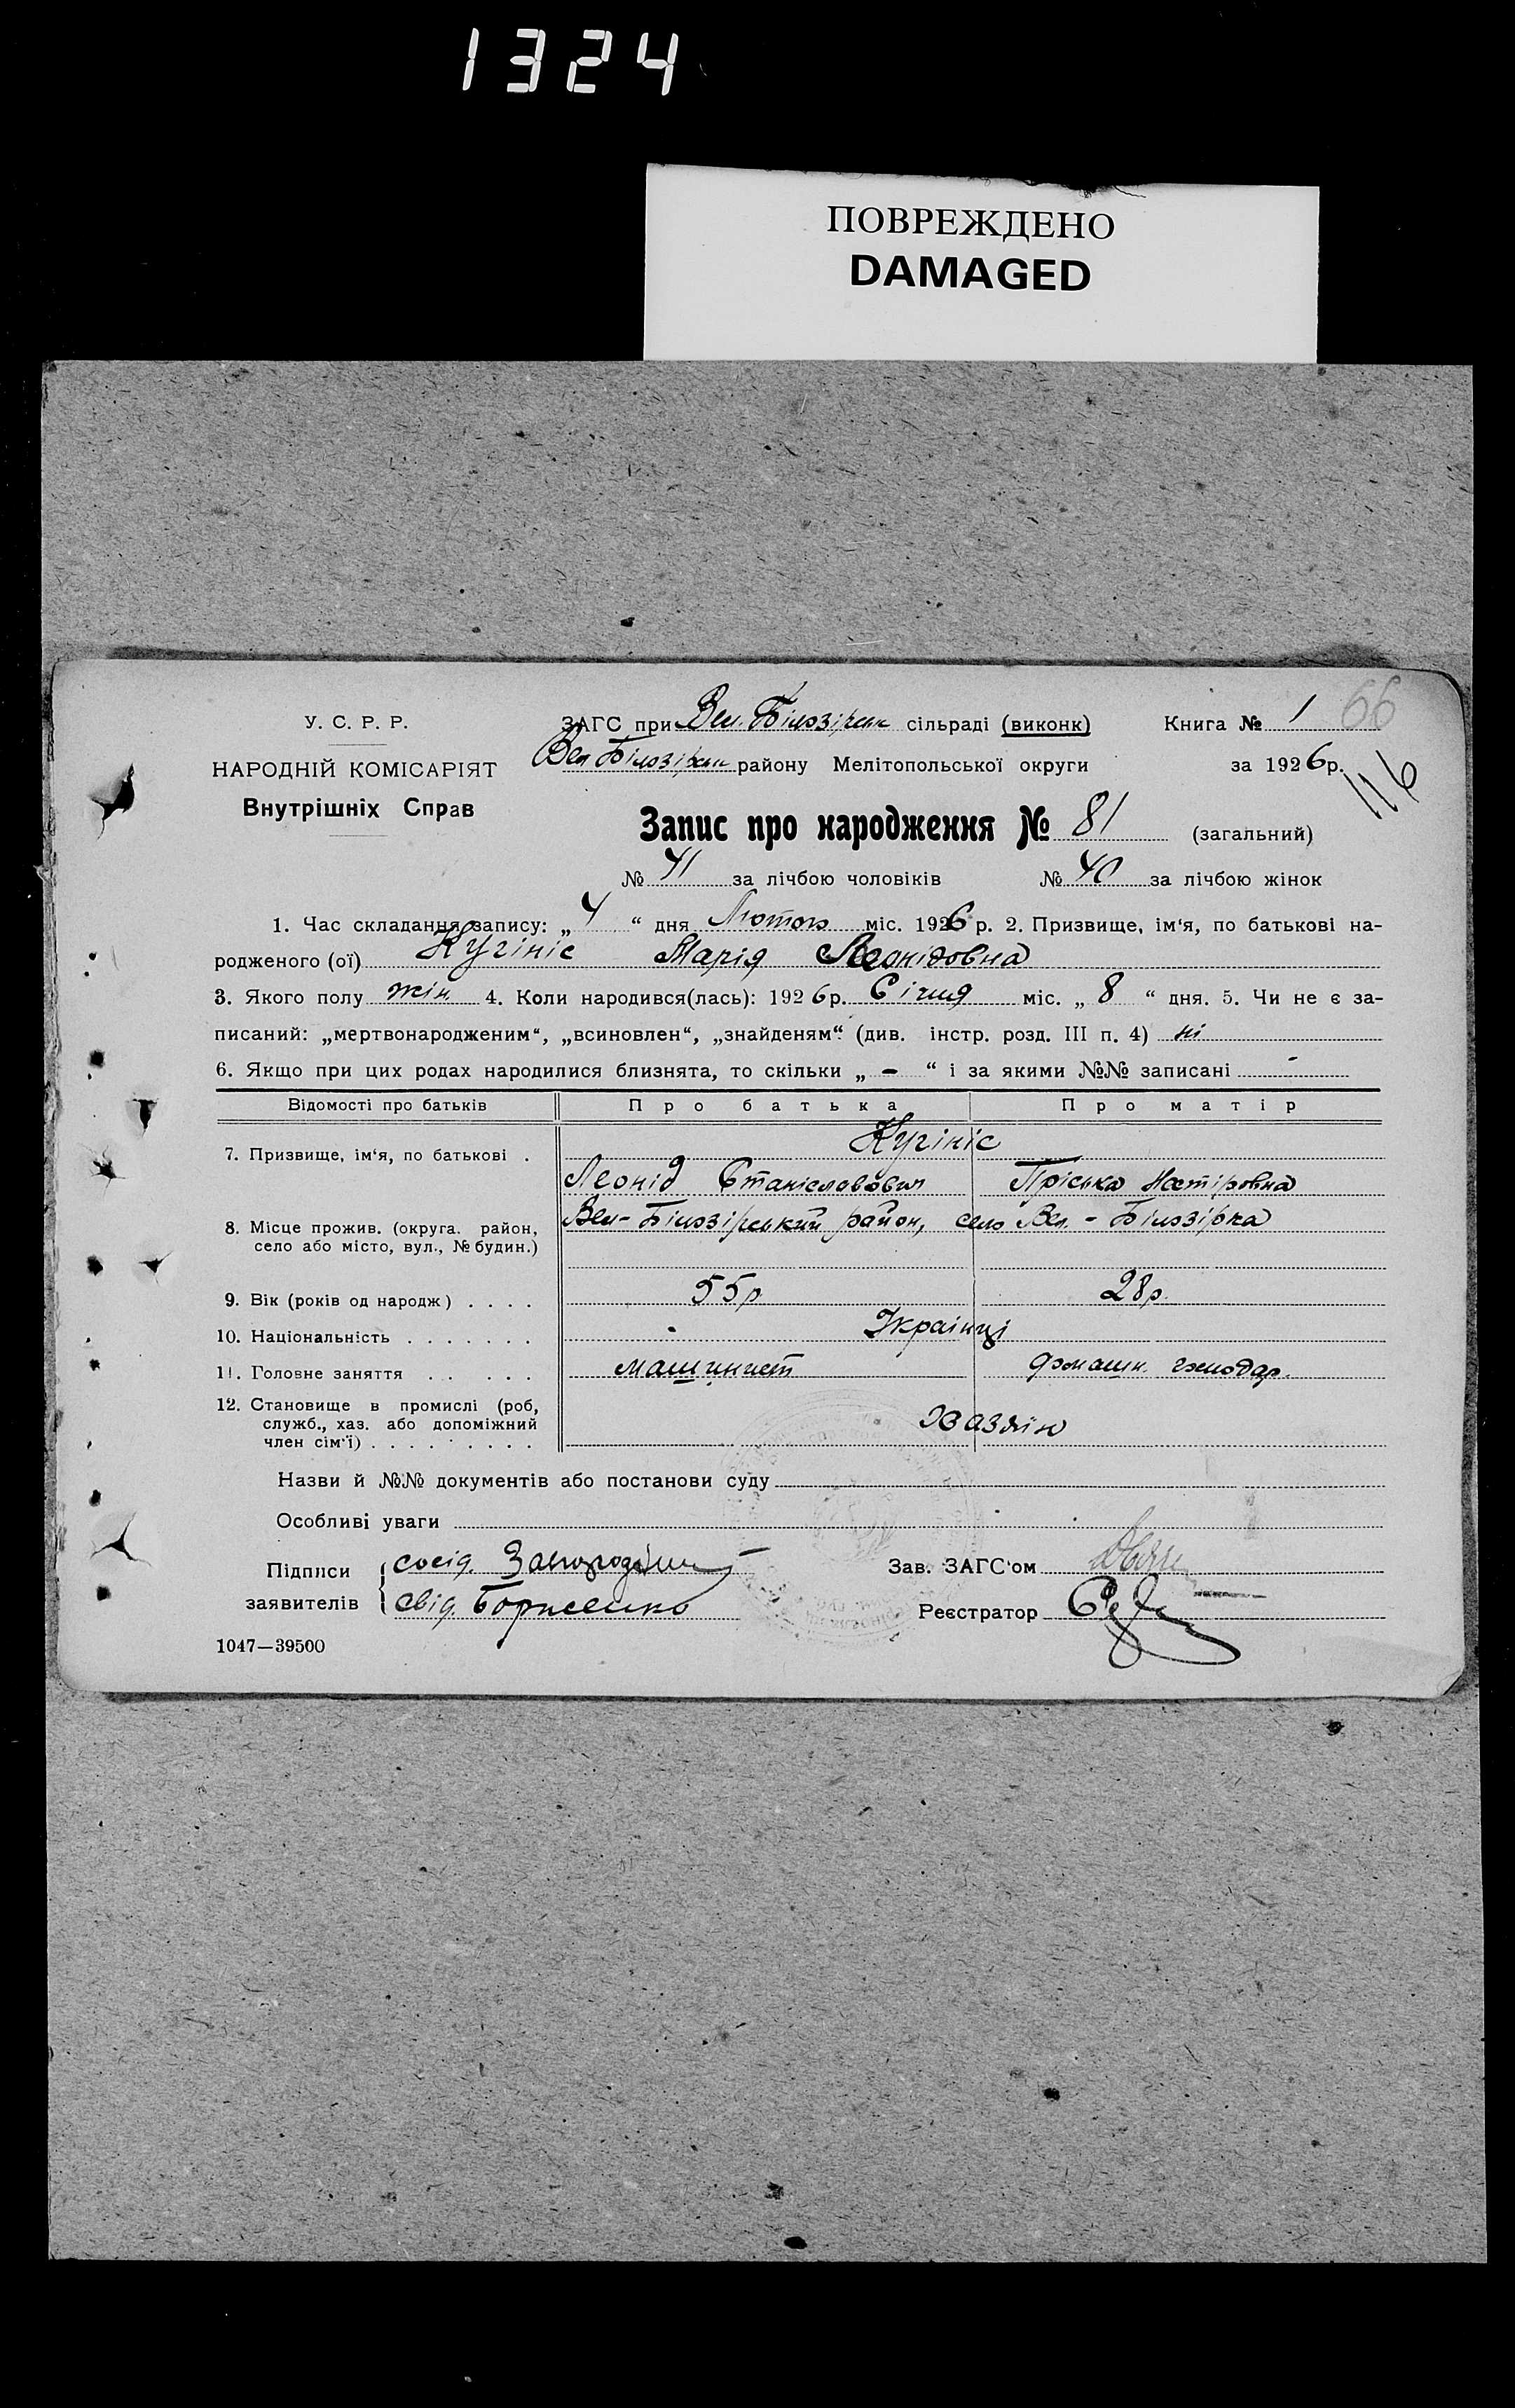 1324
ПОВРЕЖДЕНО
DAMAGED
У. С. Р. Р.
НАРОДНІЙ КОМІСАРІЯТ
Внутрішніх Справ
ЗАГС при Вел. Білозірськ сільраді (виконк)
Книга № 1 66
Вел Білозірськ району Мелітопольської округи
за 1926р.
116
Запис про народження № 81 (загальний)
№ 41 за лічбою чоловіків № 40 за лічбою жінок
1. Час складання запису: „ 4 “ дня Лютого міс. 1926 р. 2. Призвище, ім‘я, по батькові на-
родженого (ої) Кугініс Марія Леонідовна
3. Якого полу жін. 4. Коли народився(лась): 1926р. Січня міс. „ 8 “ дня. 5. Чи не є за-
писаний: „мертвонародженим“, „всиновлен“, „знайденям“ (див. інстр. розд. III п. 4) ні
6. Якщо при цих родах народилися близнята, то скільки „ - “ і за якими №№ записані -
Відомості про батьків Про батька Про матір
Кугініс
7. Призвище, ім‘я, по батькові .
Леонід Станіславович Пріська Нестіровна
8. Місце прожив. (округа. район,
село або місто, вул., № будин.)
Вел-Білозірський район, село Вел.-Білозірка
9. Вік (років од народж) . . . . 55р 28р.
10. Національність . . . . . . . Украінці
11. Головне заняття . . . . . машинист домашн. господар.
12. Становище в промислі (роб,
служб., хаз. або допоміжний
член сім‘ї) . . . . . . . . .
Хазяїн
Назви й №№ документів або постанови суду
Особливі уваги
Підписи
заявителів
сосід.
свід. Борисенко
Зав. ЗАГС‘ом
Реєстратор
1047—39500